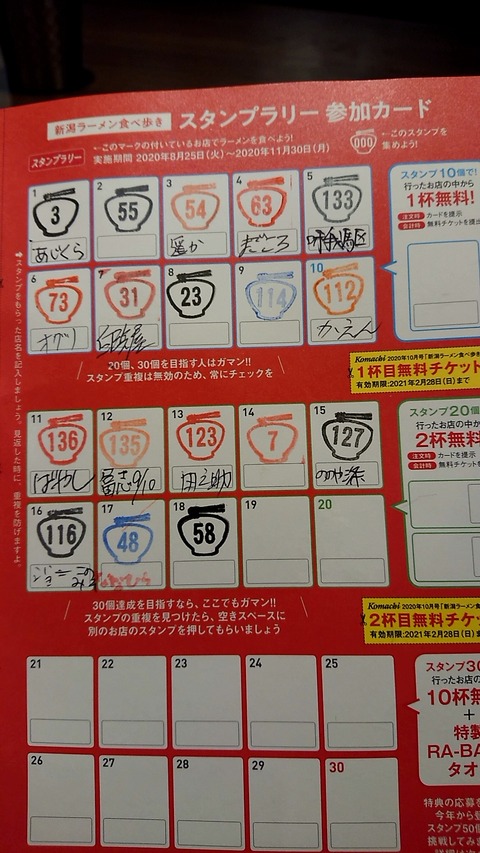 新潟ラーメン食べ歩き スタンプラリー 参加カード
スタンプラリー
～このマークの付いているお店でラーメンを食べよう!
実施期間 2020年8月25日(火)～2020年11月30日(月)
000
～このスタンプを
集めよう!
スタンプをもらった店名を記入しましょう。見返した時に、重複を防げますよ。
1 2 3 4 5
3 55 54 63 133
あじくら
6 7 8 9 10
73 31 23 114 112
オグリ
かえん
スタンプ10個で!
行ったお店の中から
1杯無料!
注文時 カードを提示
会計時 無料チケットを提出
20個、30個を目指す人はガマン!!
スタンプ重複は無効のため、常にチェックを
Komachi 2020年10月号「新潟ラーメン食べ歩き
1杯目無料チケット
有効期限:2021年2月28日(日)まで
11 12 13 14 15
136 135 123 7 127
はやし
田之助
16 17 18 19 20
116 48 58
スタンプ20個
行ったお店の中
2杯無料
注文時 カードを提示
会計時 無料チケット
30個達成を目指すなら、ここでもガマン!!
スタンプの重複を見つけたら、空きスペースに
別のお店のスタンプを押してもらいましょう
Komachi 2020年10月号「新潟ラーメン
2杯目無料チケ
有効期限:2021年2月28日(日)
21 22 23 24 25
26 27 28 29 30
スタンプ30
行ったお店の
10杯無
+
特製
RA-BA
タオ
特典の応募を
今年から
スタンプ50個
挑戦してみ